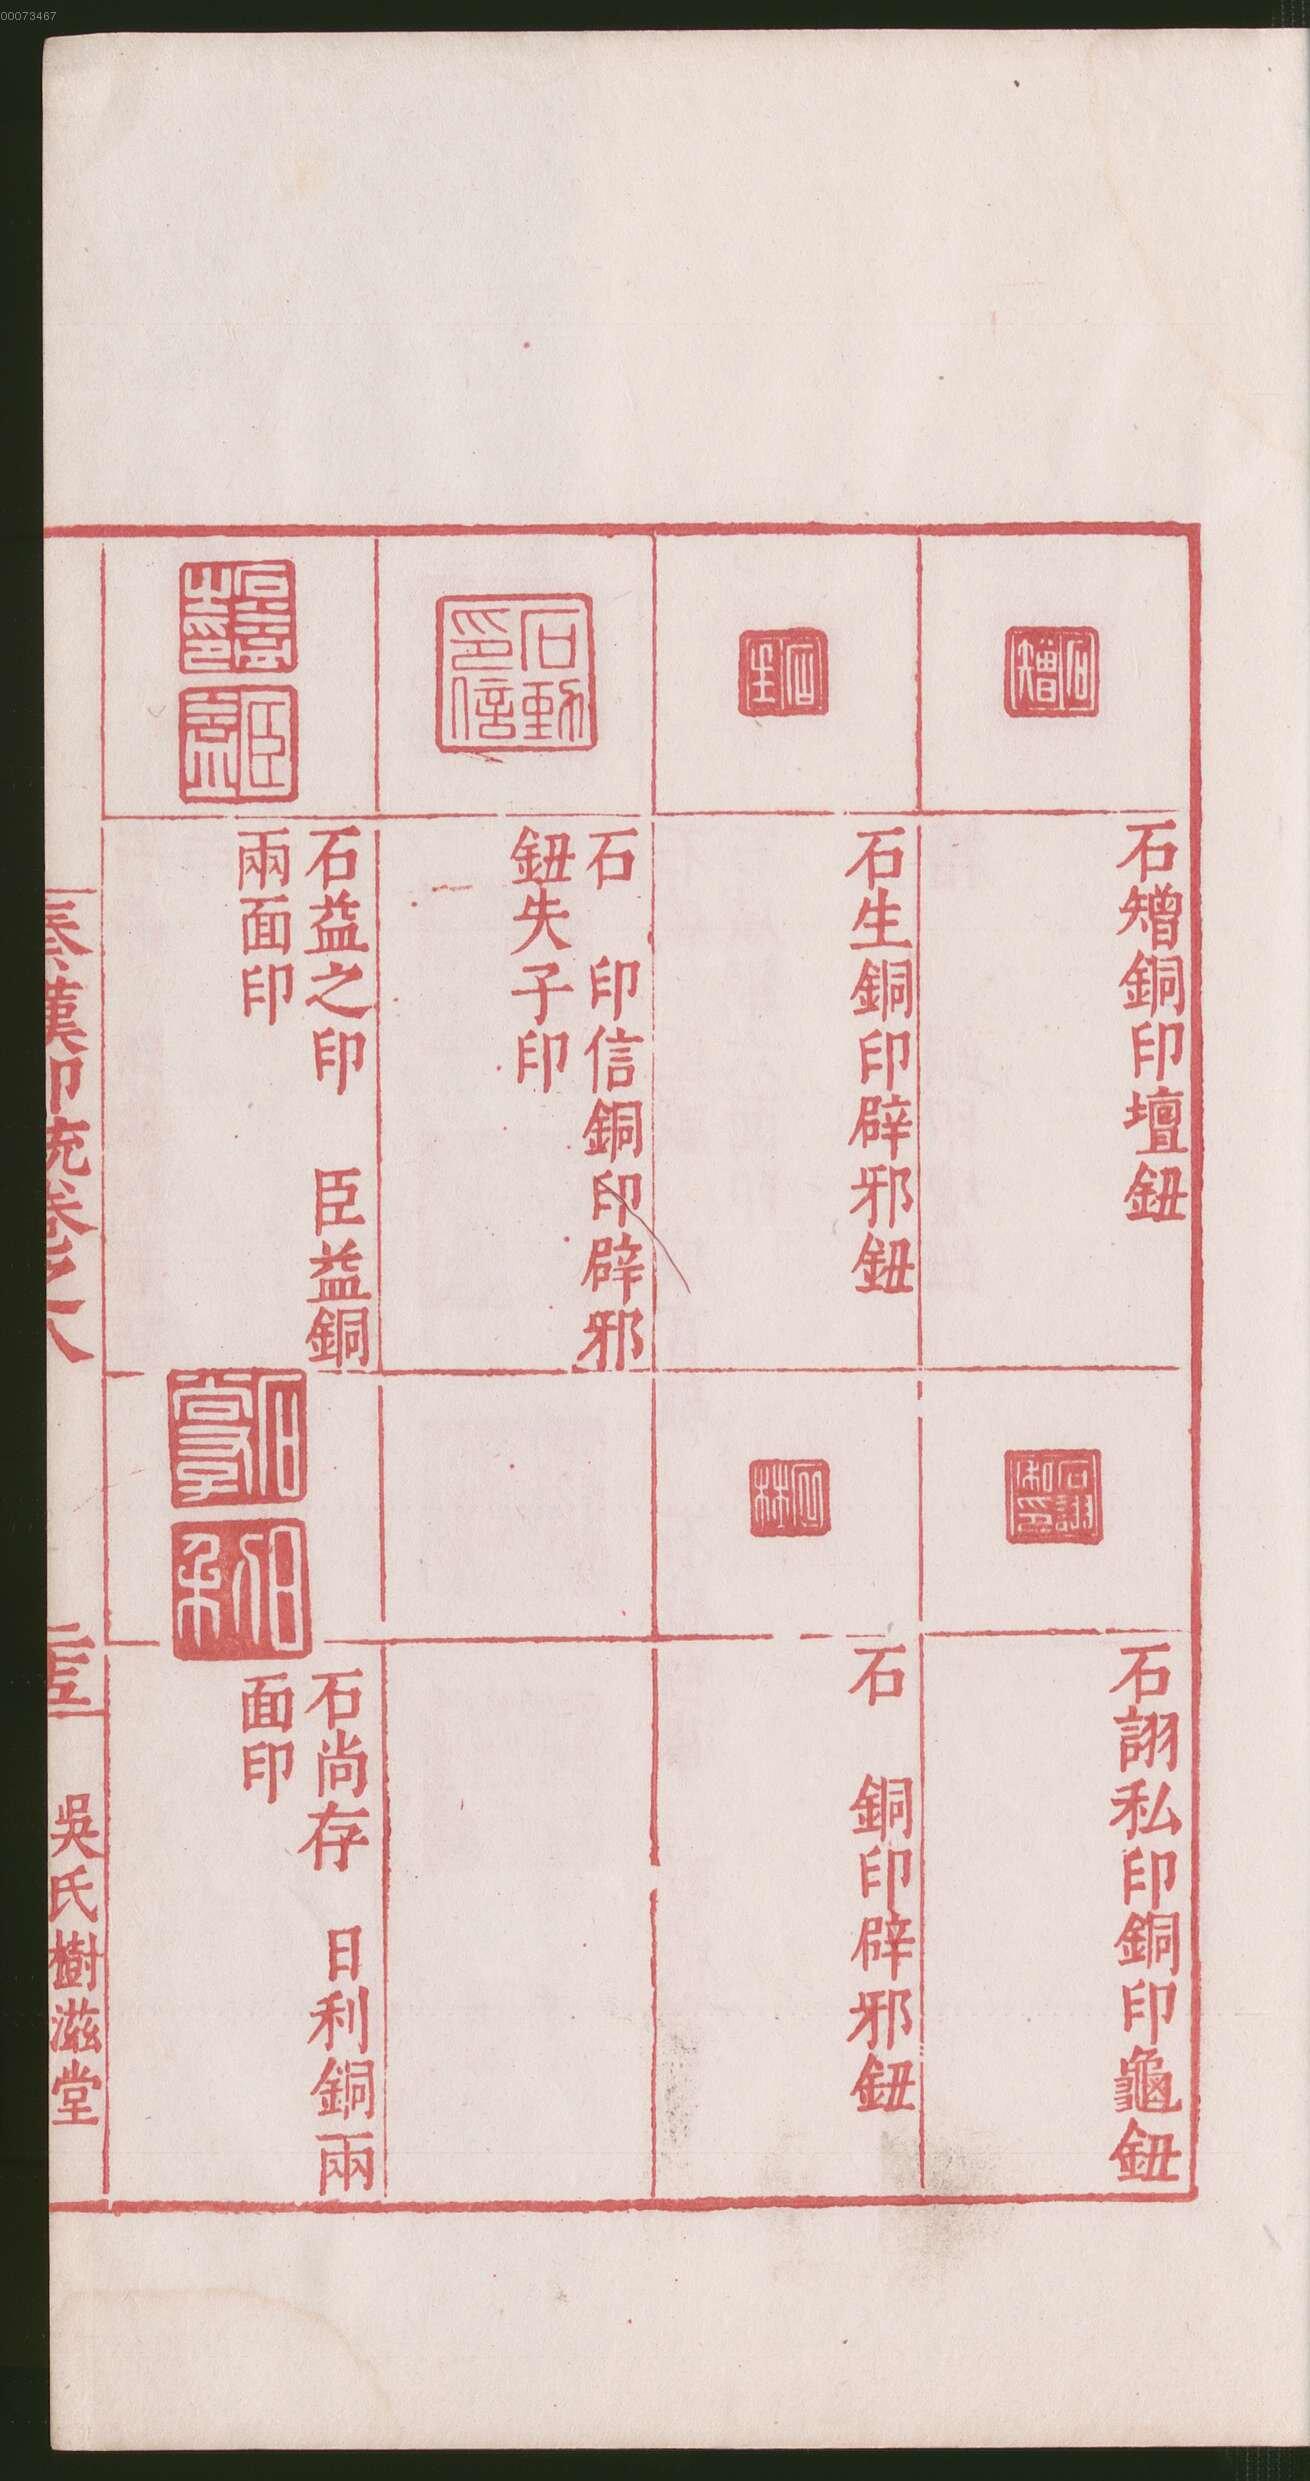 00073467
石矰銅印壇鈕
石詡私印銅印龜鈕
石生銅印辟邪鈕
石　銅印辟邪鈕
石　印信銅印辟邪
鈕失子印
石益之印　臣益銅
兩面印
石尚存　日利銅兩
面印
秦漢印統卷之八
吳氏樹滋堂